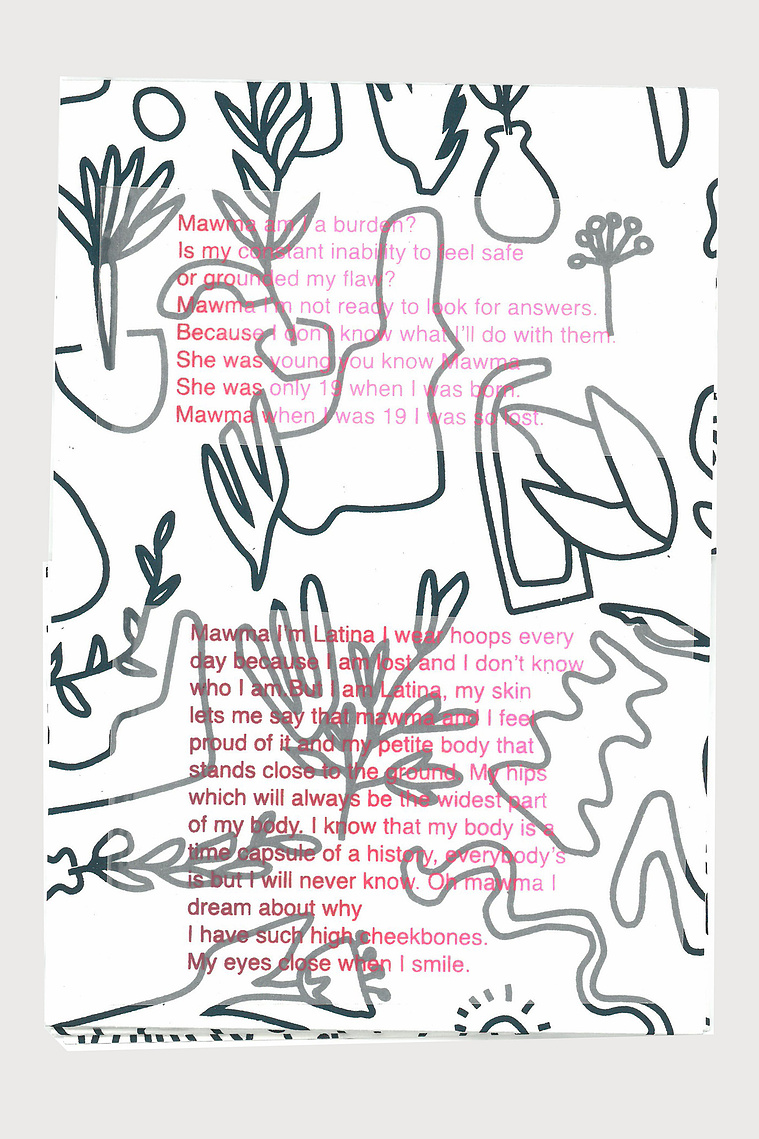 Mawma am I a burden?
Is my constant inability to feel safe
or grounded my flaw?
Mawma I'm not ready to look for answers.
Because I don't know what I'll do with them.
She was young you know Mawma
She was only 19 when I was born.
Mawma when I was 19 I was so lost.
Mawma I'm Latina I wear hoops every
day because I am lost and I don't know
who I am.But I am Latina, my skin
lets me say that mawma and I feel
proud of it and my petite body that
stands close to the ground. My hips
which will always be the widest part
of my body. I know that my body is a
time capsule of a history, everybody's
is but I will never know. Oh mawma I
dream about why
I have such high cheekbones.
My eyes close when I smile.